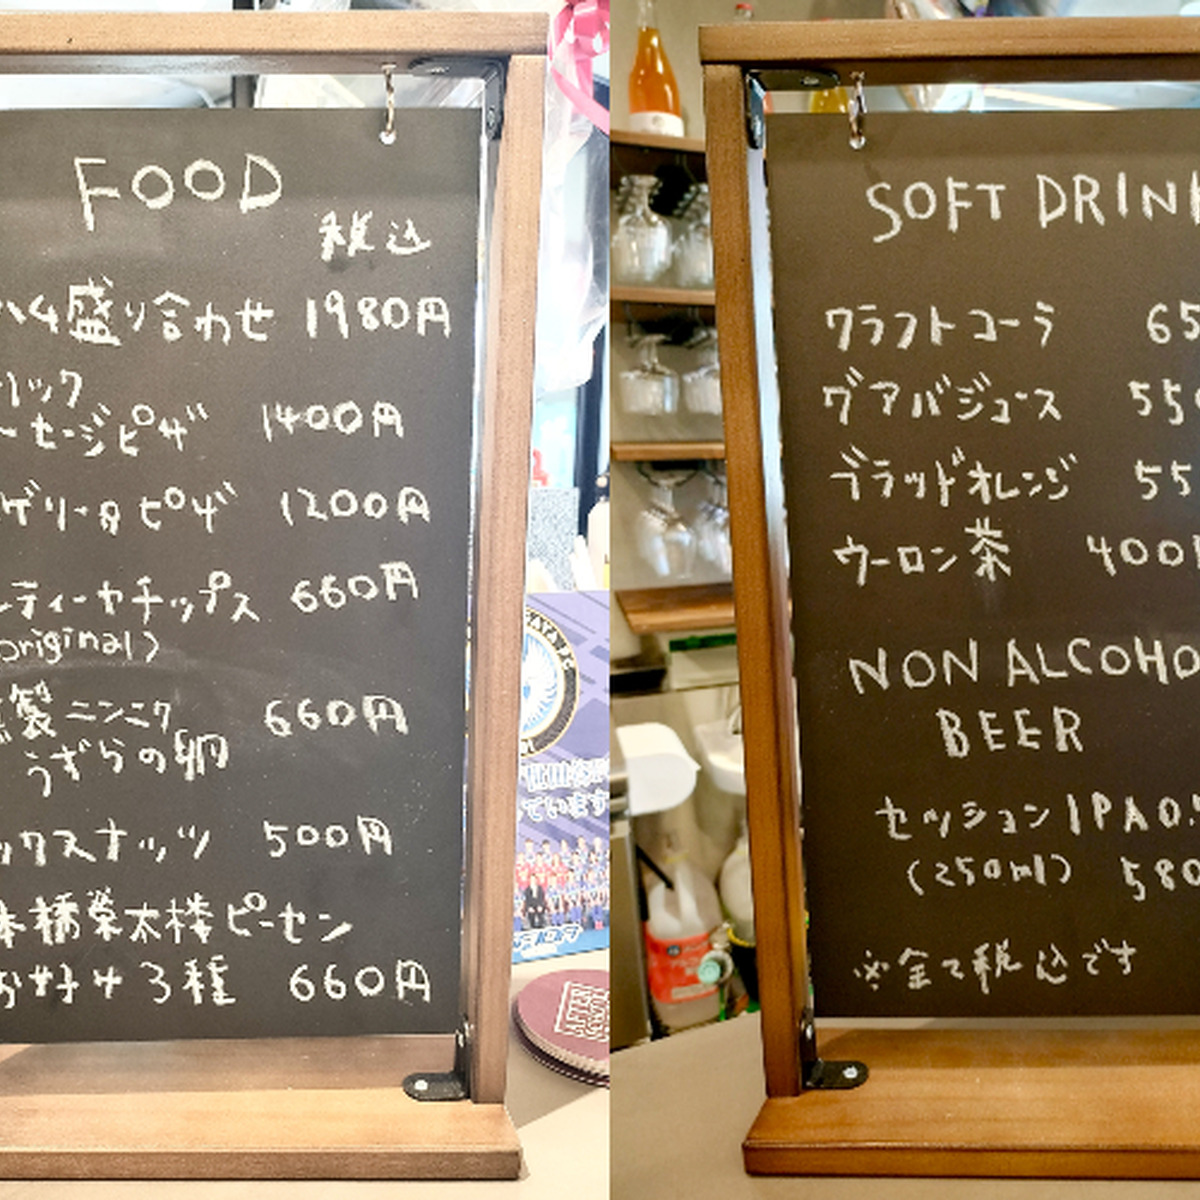 FOOD
税込
ハム盛り合わせ 1980円
リック
ーセージピザ 1400円
ゲリータピザ 1200円
ティーヤチップス 660円
original)
製ニンニク 660円
うずらの卵
ックスナッツ 500円
本橋榮太樓ピーセン
お好み3種 660円
ています
AFTER
SCHOOL
SOFT DRIN
クラフトコーラ 65
グアバジュース 55
ブラッドオレンジ 55
ウーロン茶 400
NON ALCOHO
BEER
セッションIPA 0.
(250ml) 580
※全て税込です